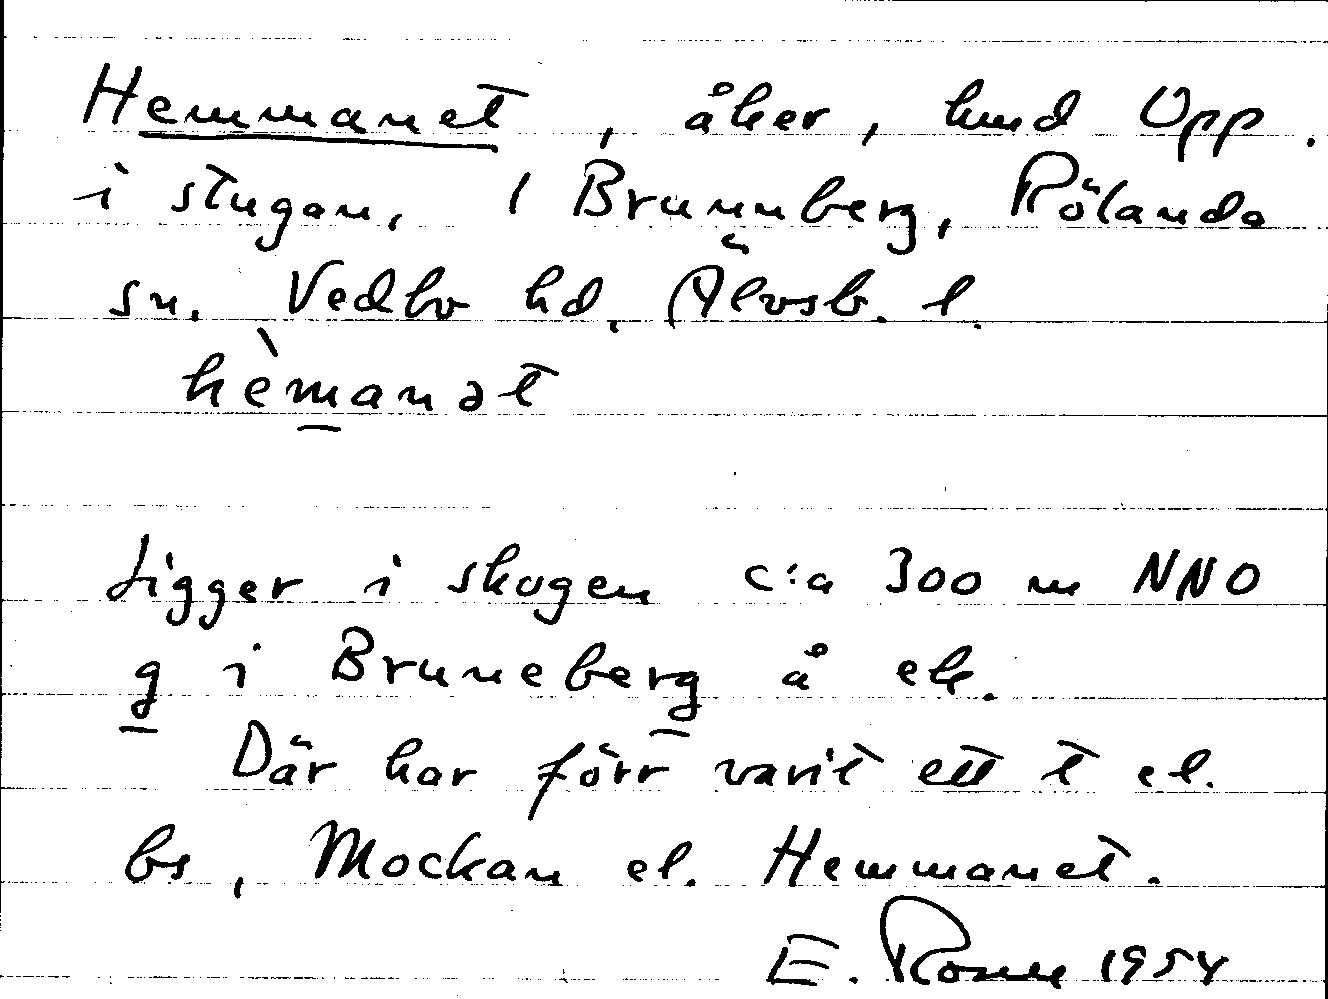 Hemmanet, åker, hmd Upp.
i stugan, 1 Brunnberg, Rölanda
sn. Vedbo hd. Älvsb. l.
hèmanət
Ligger i skogen c:a 300 m NNO
g i Bruneberg å ek.
Där har förr varit ett t el.
bs, Mockan el. Hemmanet.
E. 1954